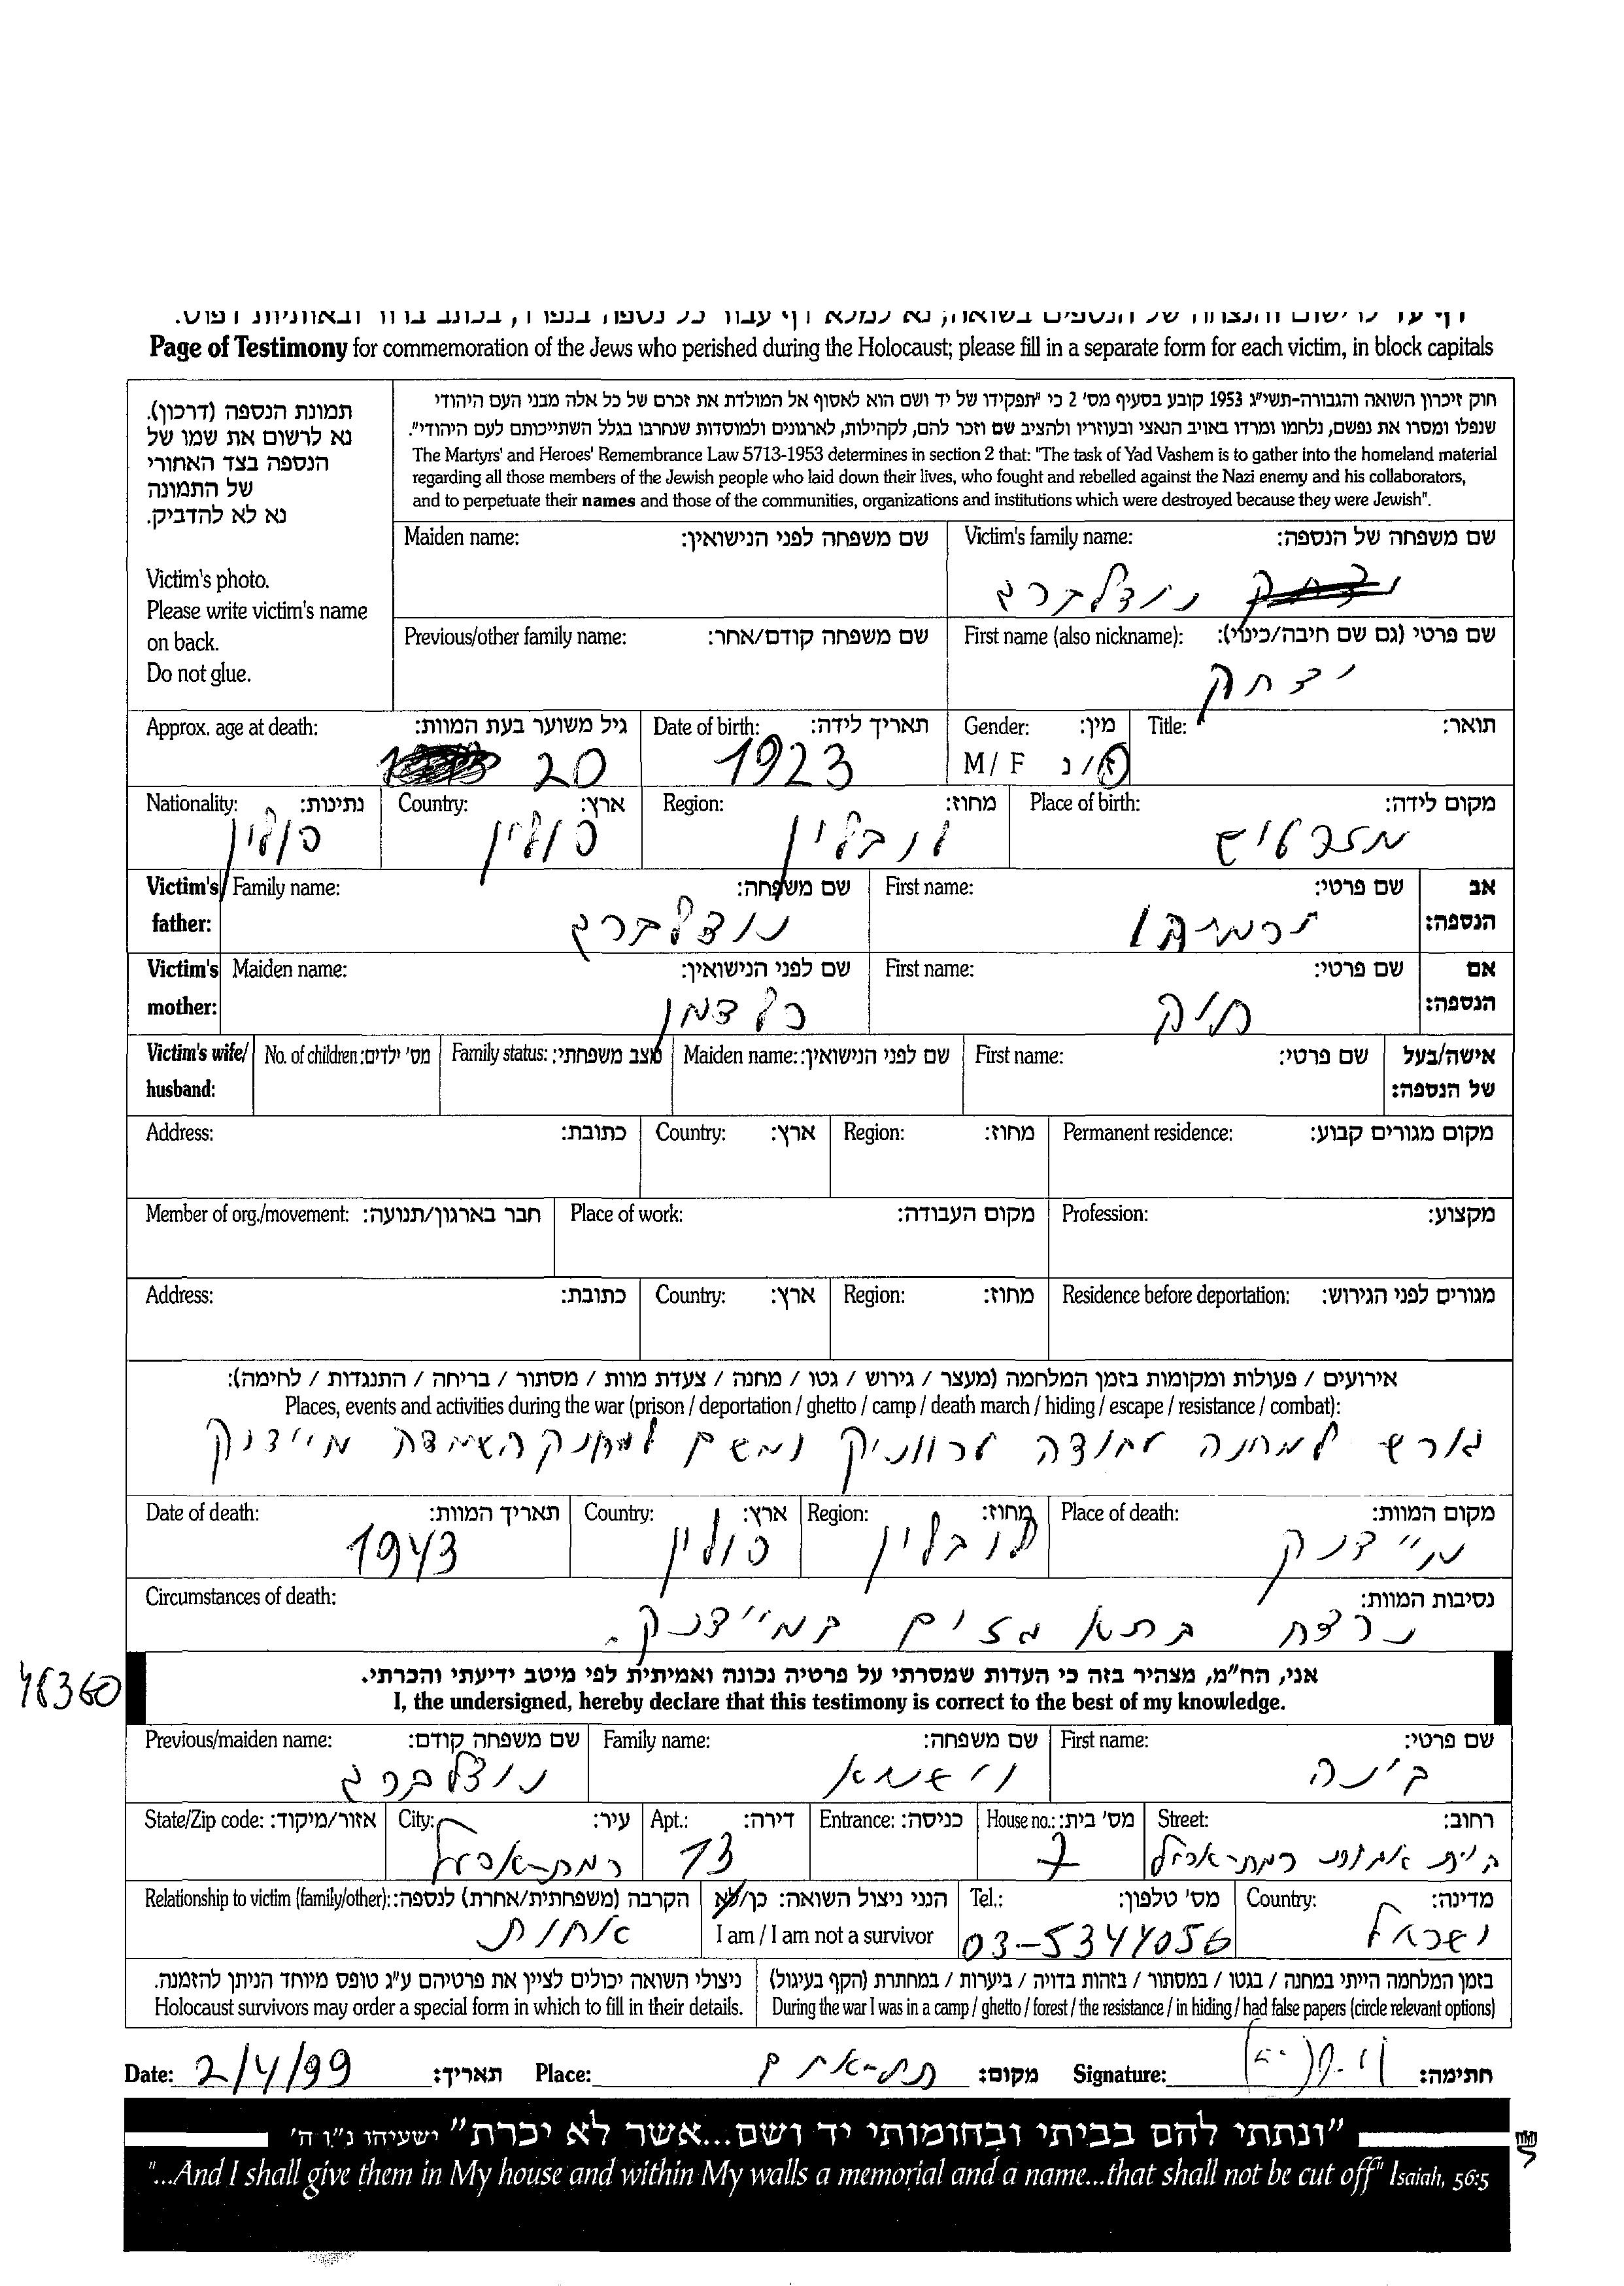 Page of Testimony for commemoration of the Jews who perished during the Holocaust; please fill in a separate form for each victim, in block capitals
תמונת הנספה (דרכון).
נא לרשום את שמו של
הנספה בצד האחורי
של התמונה
נא לא להדביק.
Victim's photo.
Please write victim's name
on back.
Do not glue.
חוק זיכרון השואה והגבורה-תשי"ג 1953 קובע בסעיף מס' 2 כי "תפקידו של יד ושם הוא לאסוף אל המולדת את זכרם של כל אלה מבני העם היהודי
שנפלו ומסרו את נפשם, נלחמו ומרדו באויב הנאצי ובעוזריו ולהציב שם וזכר להם, לקהילות, לארגונים ולמוסדות שנחרבו בגלל השתייכותם לעם היהודי".
The Martyrs' and Heroes' Remembrance Law 5713-1953 determines in section 2 that: "The task of Yad Vashem is to gather into the homeland material
regarding all those members of the Jewish people who laid down their lives, who fought and rebelled against the Nazi enemy and his collaborators,
and to perpetuate their names and those of the communities, organizations and institutions which were destroyed because they were Jewish".
Maiden name: שם משפחה לפני הנישואין: Victim's family name: שם משפחה של הנספה:
נודלברג
Previous/other family name: שם משפחה קודם/אחר: First name (also nickname): שם פרטי (גם שם חיבה/כינוי):
יצחק
Approx. age at death: גיל משוער בעת המוות: Date of birth: תאריך לידה: Gender: מין: Title: תואר:
20 1923 M / F ז / נ
Nationality: נתינות: Country: ארץ: Region: מחוז: Place of birth: מקום לידה:
פולין פולין לובלין
Victim's father: Family name: שם משפחה: First name: שם פרטי: אב הנספה:
נודלברג
Victim's mother: Maiden name: שם לפני הנישואין: First name: שם פרטי: אם הנספה:
Victim's wife/ husband: No. of children: מס' ילדים: Family status: מצב משפחתי: Maiden name: שם לפני הנישואין: First name: שם פרטי: אישה/בעל של הנספה:
Address: כתובת: Country: ארץ: Region: מחוז: Permanent residence: מקום מגורים קבוע:
Member of org./movement: חבר בארגון/תנועה: Place of work: מקום העבודה: Profession: מקצוע:
Address: כתובת: Country: ארץ: Region: מחוז: Residence before deportation: מגורים לפני הגירוש:
אירועים / פעולות ומקומות בזמן המלחמה (מעצר / גירוש / גטו / מחנה / צעדת מוות / מסתור / בריחה / התנגדות / לחימה):
Places, events and activities during the war (prison / deportation / ghetto / camp / death march / hiding / escape / resistance / combat):
גורש למחנה עבודה טרווניק ומשם למחנה השמדה מיידנק
Date of death: תאריך המוות: Country: ארץ: Region: מחוז: Place of death: מקום המוות:
1943 פולין לובלין מיידנק
Circumstances of death: נסיבות המוות:
נרצח בתא גזים במיידנק.
48360
אני, הח"מ, מצהיר בזה כי העדות שמסרתי על פרטיה נכונה ואמיתית לפי מיטב ידיעתי והכרתי.
I, the undersigned, hereby declare that this testimony is correct to the best of my knowledge.
Previous/maiden name: שם משפחה קודם: Family name: שם משפחה: First name: שם פרטי:
נודלברג בינה
State/Zip code: אזור/מיקוד: City: עיר: Apt.: דירה: Entrance: כניסה: House no.: מס' בית: Street: רחוב:
רמת-אפעל 13 7 בית אבות רמת-אפעל
Relationship to victim (family/other): הקרבה (משפחתית/אחרת) לנספה: הנני ניצול השואה: כן/לא Tel.: מס' טלפון: Country: מדינה:
אחות I am / I am not a survivor 03-5344056 ישראל
ניצולי השואה יכולים לציין את פרטיהם ע"ג טופס מיוחד הניתן להזמנה. בזמן המלחמה הייתי במחנה / בגטו / במסתור / בזהות בדויה / ביערות / במחתרת (הקף בעיגול)
Holocaust survivors may order a special form in which to fill in their details. During the war I was in a camp / ghetto / forest / the resistance / in hiding / had false papers (circle relevant options)
Date: 2/4/99 תאריך: Place: מקום: Signature: חתימה:
"ונתתי להם בביתי ובחומותי יד ושם...אשר לא יכרת" ישעיהו נ"ו ה'
"...And I shall give them in My house and within My walls a memorial and a name...that shall not be cut off" Isaiah, 56:5